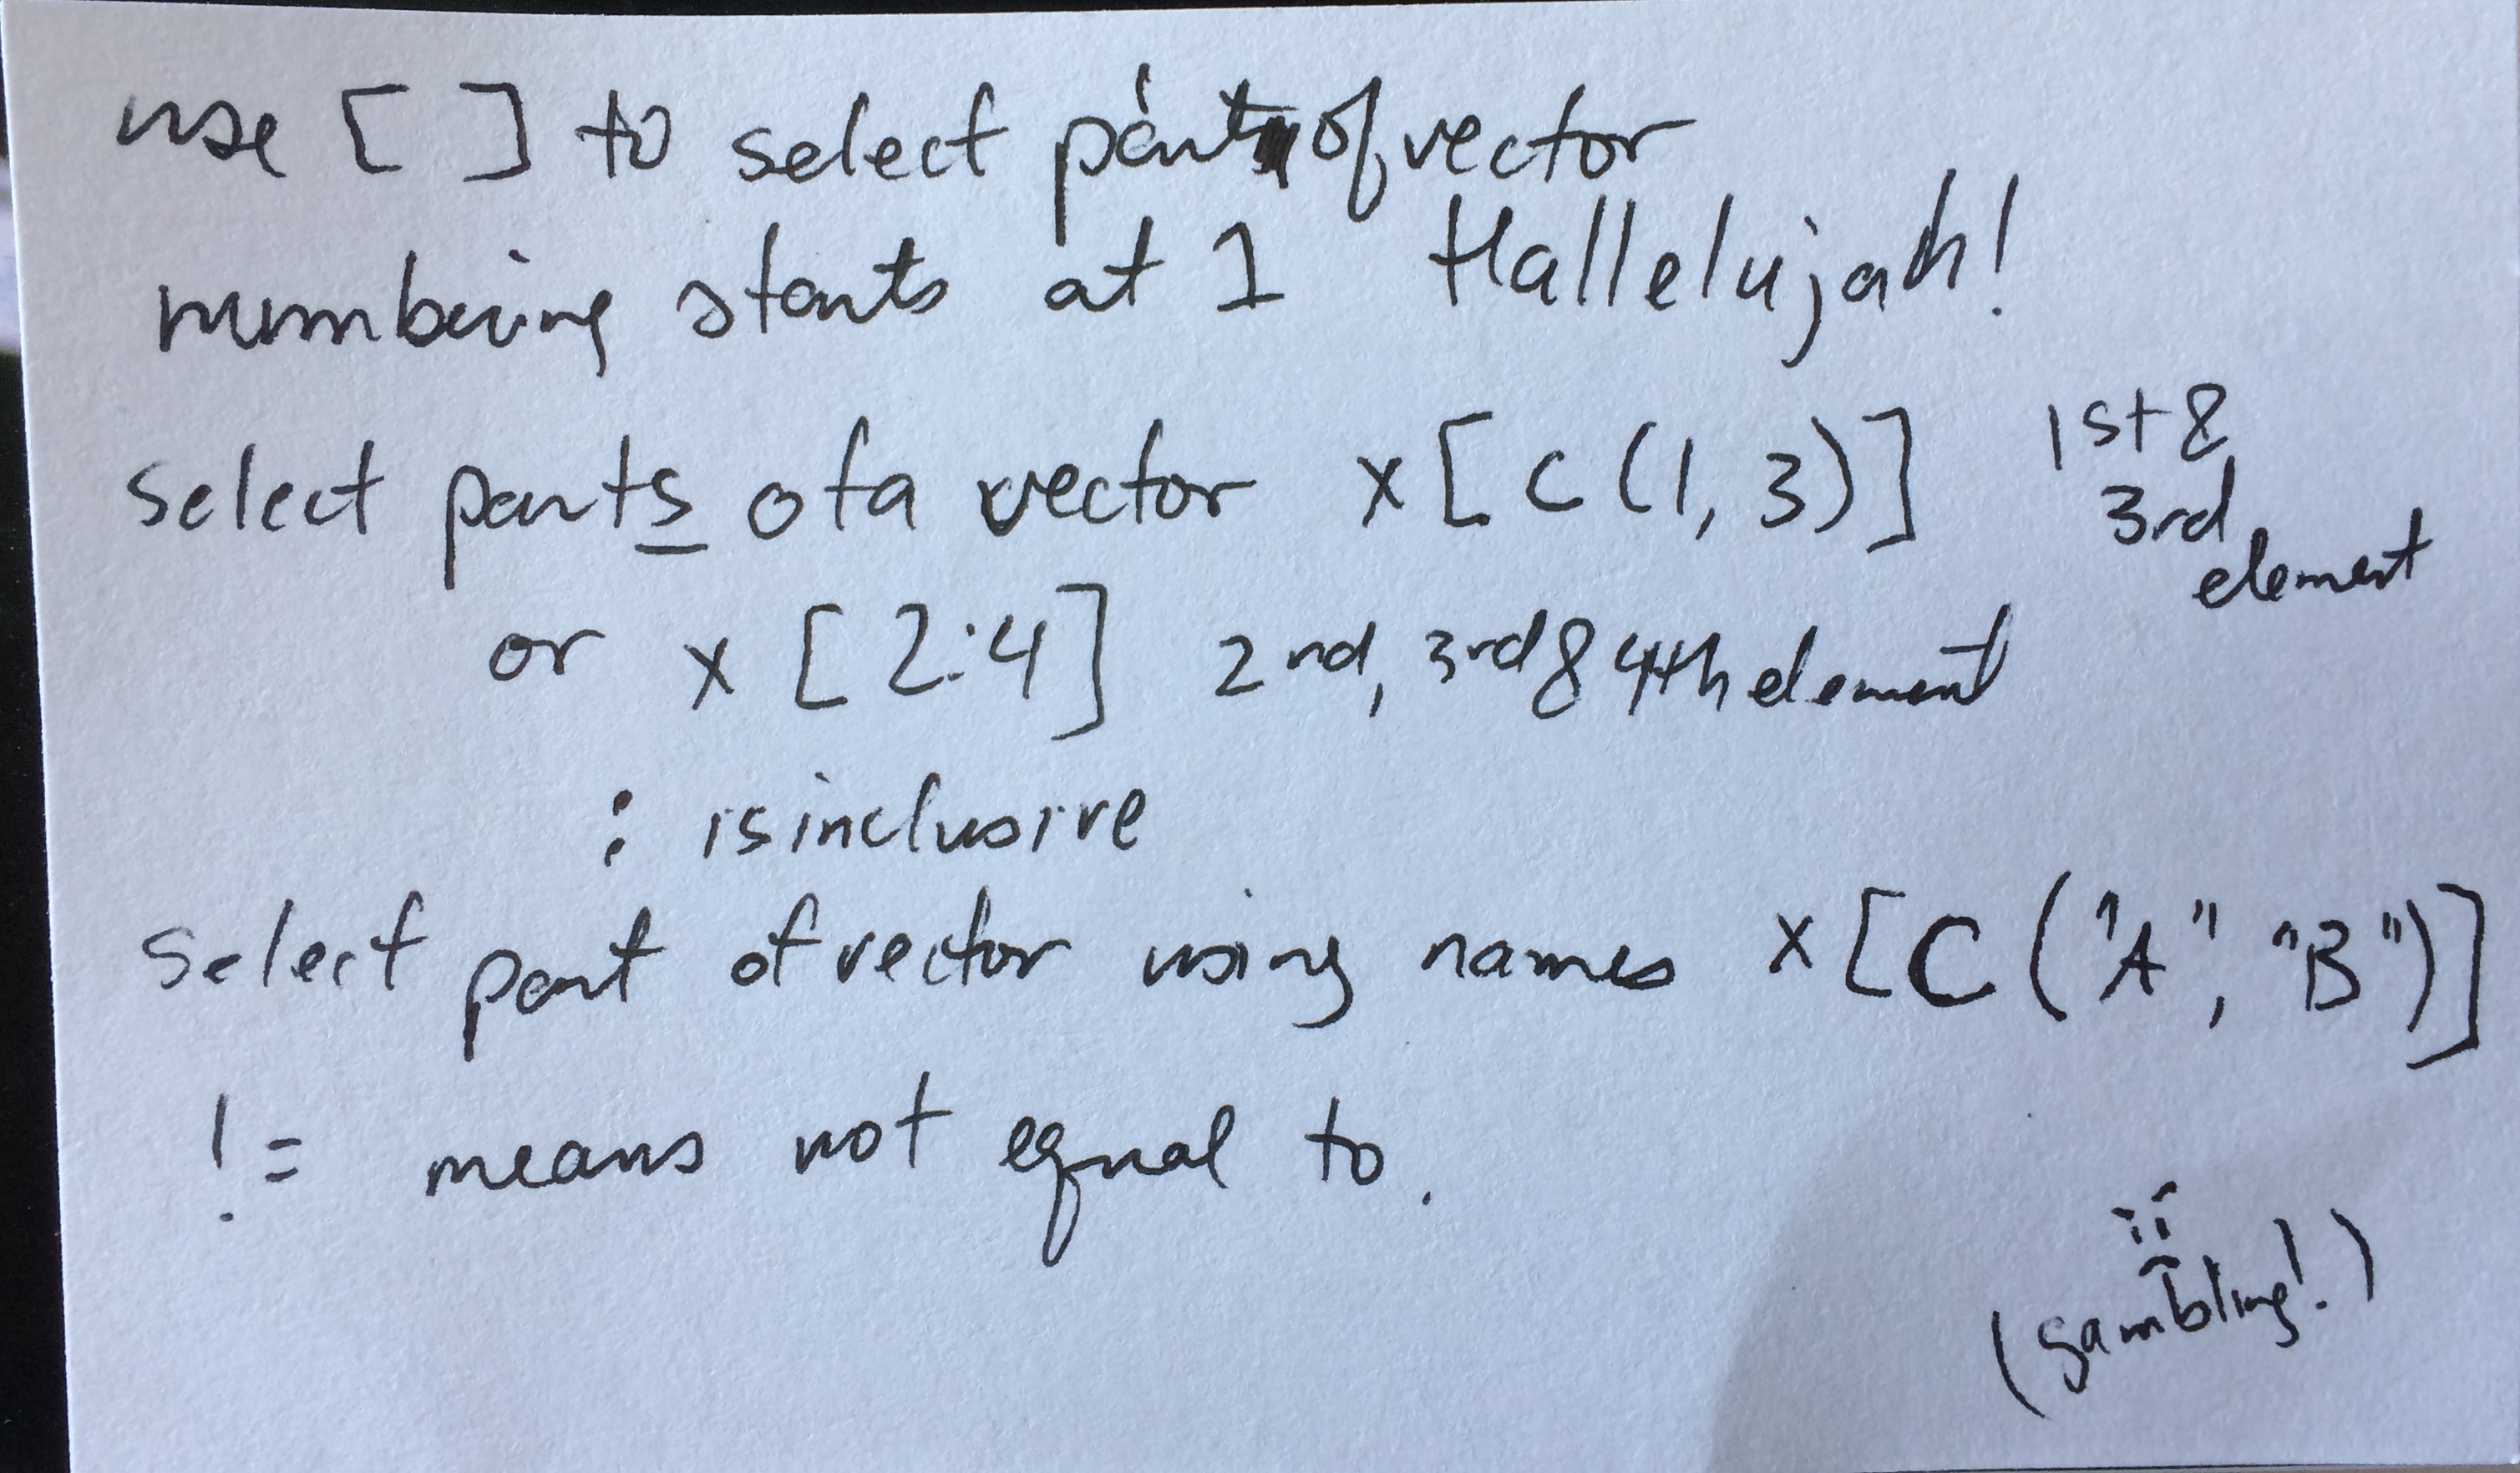 use [ ] to select part of vector
numbering starts at 1 Hallelujah!
select parts of a vector x[c(1,3)] 1st &
3rd
element
or x[2:4] 2nd, 3rd & 4th element
: is inclusive
select part of vector using names x[C("A", "B")]
!= means not equal to.
(gambling!)